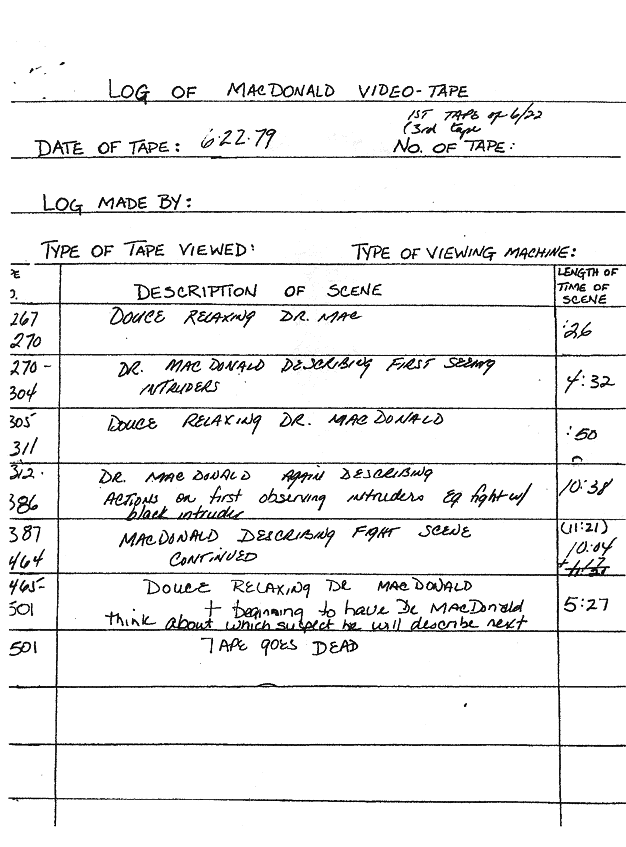 LOG OF MACDONALD VIDEO-TAPE
1ST TAPE of 6/22
(3rd tape
DATE OF TAPE: 6-22-79 NO. OF TAPE:
LOG MADE BY:
TYPE OF TAPE VIEWED: TYPE OF VIEWING MACHINE:
DESCRIPTION OF SCENE
LENGTH OF
TIME OF
SCENE
267 DOUCE RELAXING DR. MAC :26
270
270 - DR. MACDONALD DESCRIBING FIRST SEEING 4:32
304 INTRUDERS
305 DOUCE RELAXING DR. MACDONALD :50
311
312 - DR. MACDONALD AGAIN DESCRIBING 10:38
386 ACTIONS on first observing intruders Eq fight w/
black intruder
387 MACDONALD DESCRIBING FIGHT SCENE (11:21)
464 CONTINUED 10:04
+ 1:17
11:21
465- DOUCE RELAXING DR MACDONALD 5:27
501 + beginning to have Dr. MACDonald
think about which suspect he will describe next
501 TAPE GOES DEAD